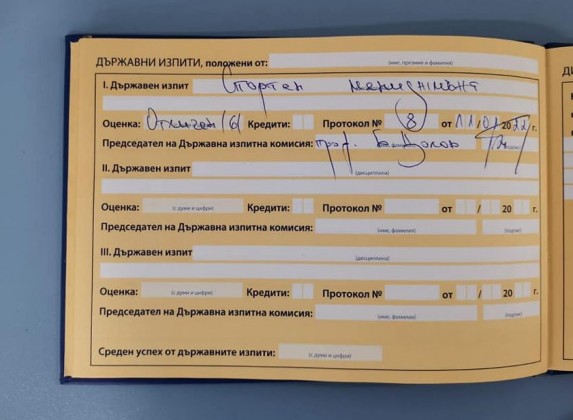 ДЪРЖАВНИ ИЗПИТИ, положени от:
(име, презиме и фамилия)
I. Държавен изпит Спортен мениджмънт
Оценка: Отличен /6/ Кредити: Протокол № 8 от 11/01 2022 г.
Председател на Държавна изпитна комисия: проф.
II. Държавен изпит
(дисциплина)
Оценка: (с думи и цифри) Кредити: Протокол № от / 20 г.
Председател на Държавна изпитна комисия: (име, фамилия) (подпис)
III. Държавен изпит
(дисциплина)
Оценка: (с думи и цифри) Кредити: Протокол № от / 20 г.
Председател на Държавна изпитна комисия: (име, фамилия) (подпис)
Среден успех от държавните изпити: (с думи и цифри)